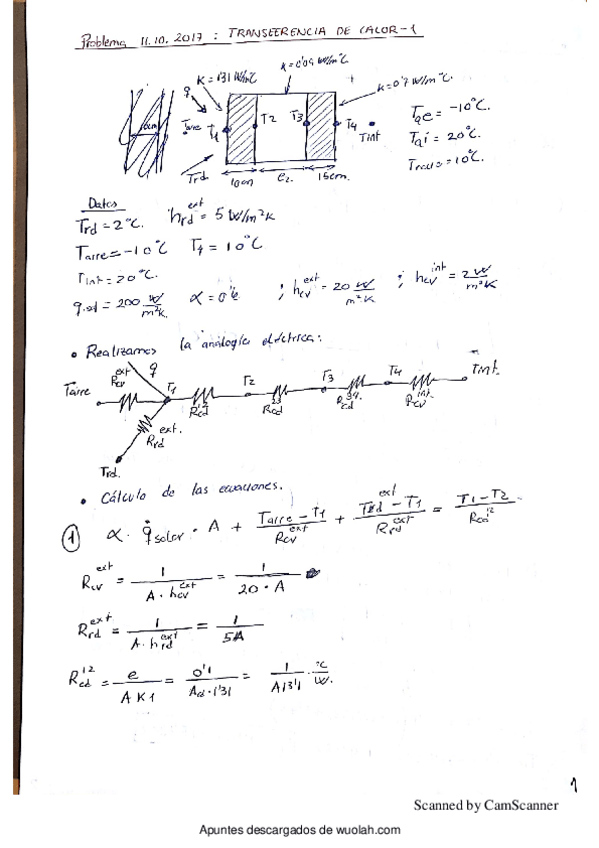 Problema 11.10.2017 : TRANSFERENCIA DE CALOR-1
K = 1'31 W/m°C
K = 0'04 W/m°C
K = 0'7 W/m°C.
q
Taire
T1
T2
T3
T4
Tint
Trd.
10cm
e2.
15cm.
Tae = -10°C.
Tai = 20°C.
= 10°C.
Datos
Trd = 2°C. hrd ext = 5 W/m²K
Taire = -10°C T1 = 10°C
Tint = 20°C.
q sol = 200 W/m²K. α = 0'6 ; hcv ext = 20 W/m²K ; hcv int = 2 W/m²K
• Realizamos la analogía eléctrica:
Taire Rcv ext q T1 Rcd 12 T2 Rcd 23 T3 Rcd 34. T4 Rcv int. Tint.
Rrd ext.
Trd.
• Cálculo de las ecuaciones.
① α · q̇ solar · A + Taire - T1 / Rcv ext + Trd ext - T1 / Rrd ext = T1 - T2 / Rcd 12
Rcv ext = 1 / A · hcv ext = 1 / 20 · A
Rrd ext = 1 / A · hrd ext = 1 / 5A
Rcd 12 = e / A K1 = 0'1 / A · 1'31 = 1 / A 13'1 °C / W.
1
Scanned by CamScanner
Apuntes descargados de wuolah.com